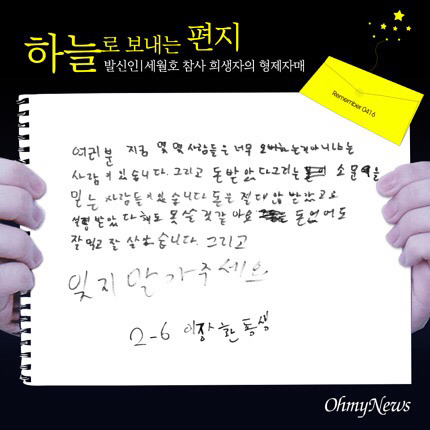 하늘로 보내는 편지
발신인|세월호 참사 희생자의 형제자매
Remember 0416
여러분 지금 몇몇 사람들은 너무 오버하는거 아니냐는
사람이 있습니다. 그리고 돈 받았다 그러는 소문을
믿는 사람들이 있습니다 돈은 절대 안 받았고요
설령 받았다 해도 못 쓸 것 같아요 돈 없어도
잘 먹고 잘 살았습니다. 그리고
잊지 말아주세요
2-6 이장환 동생
OhmyNews